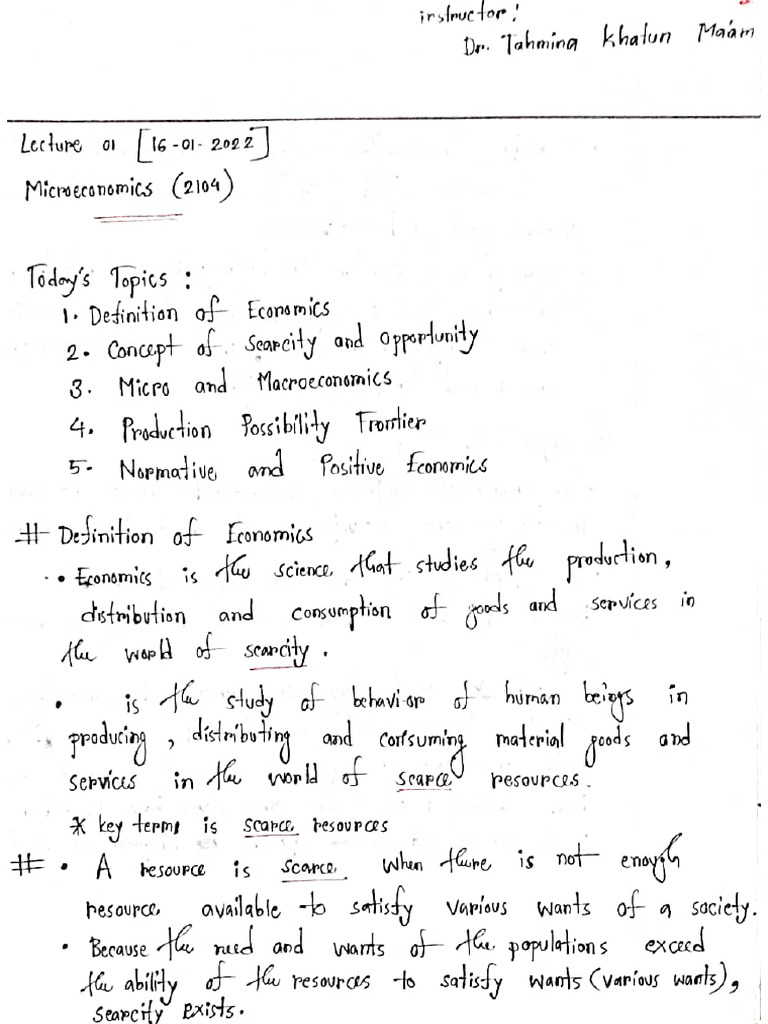 instructor:
Dr. Tahmina Khatun Ma'am
Lecture 01 [16-01-2022]
Microeconomics (2104)
Today's Topics :
1. Definition of Economics
2. Concept of Scarcity and Opportunity
3. Micro and Macroeconomics
4. Production Possibility Frontier
5. Normative and Positive Economics
# Definition of Economics
• Economics is the science that studies the production,
distribution and consumption of goods and services in
the world of scarcity.
• is the study of behavior of human beings in
producing, distributing and consuming material goods and
services in the world of scarce resources.
* key terms is scarce resources
# • A resource is scarce when there is not enough
resource available to satisfy various wants of a society.
• Because the need and wants of the populations exceed
the ability of the resources to satisfy wants (various wants),
scarcity exists.